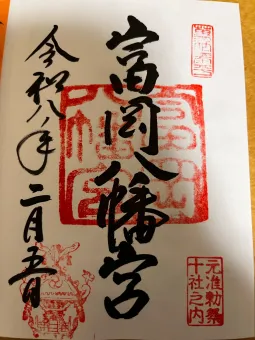 富岡八幡宮
元准勅祭
十社之内
令和八年二月五日